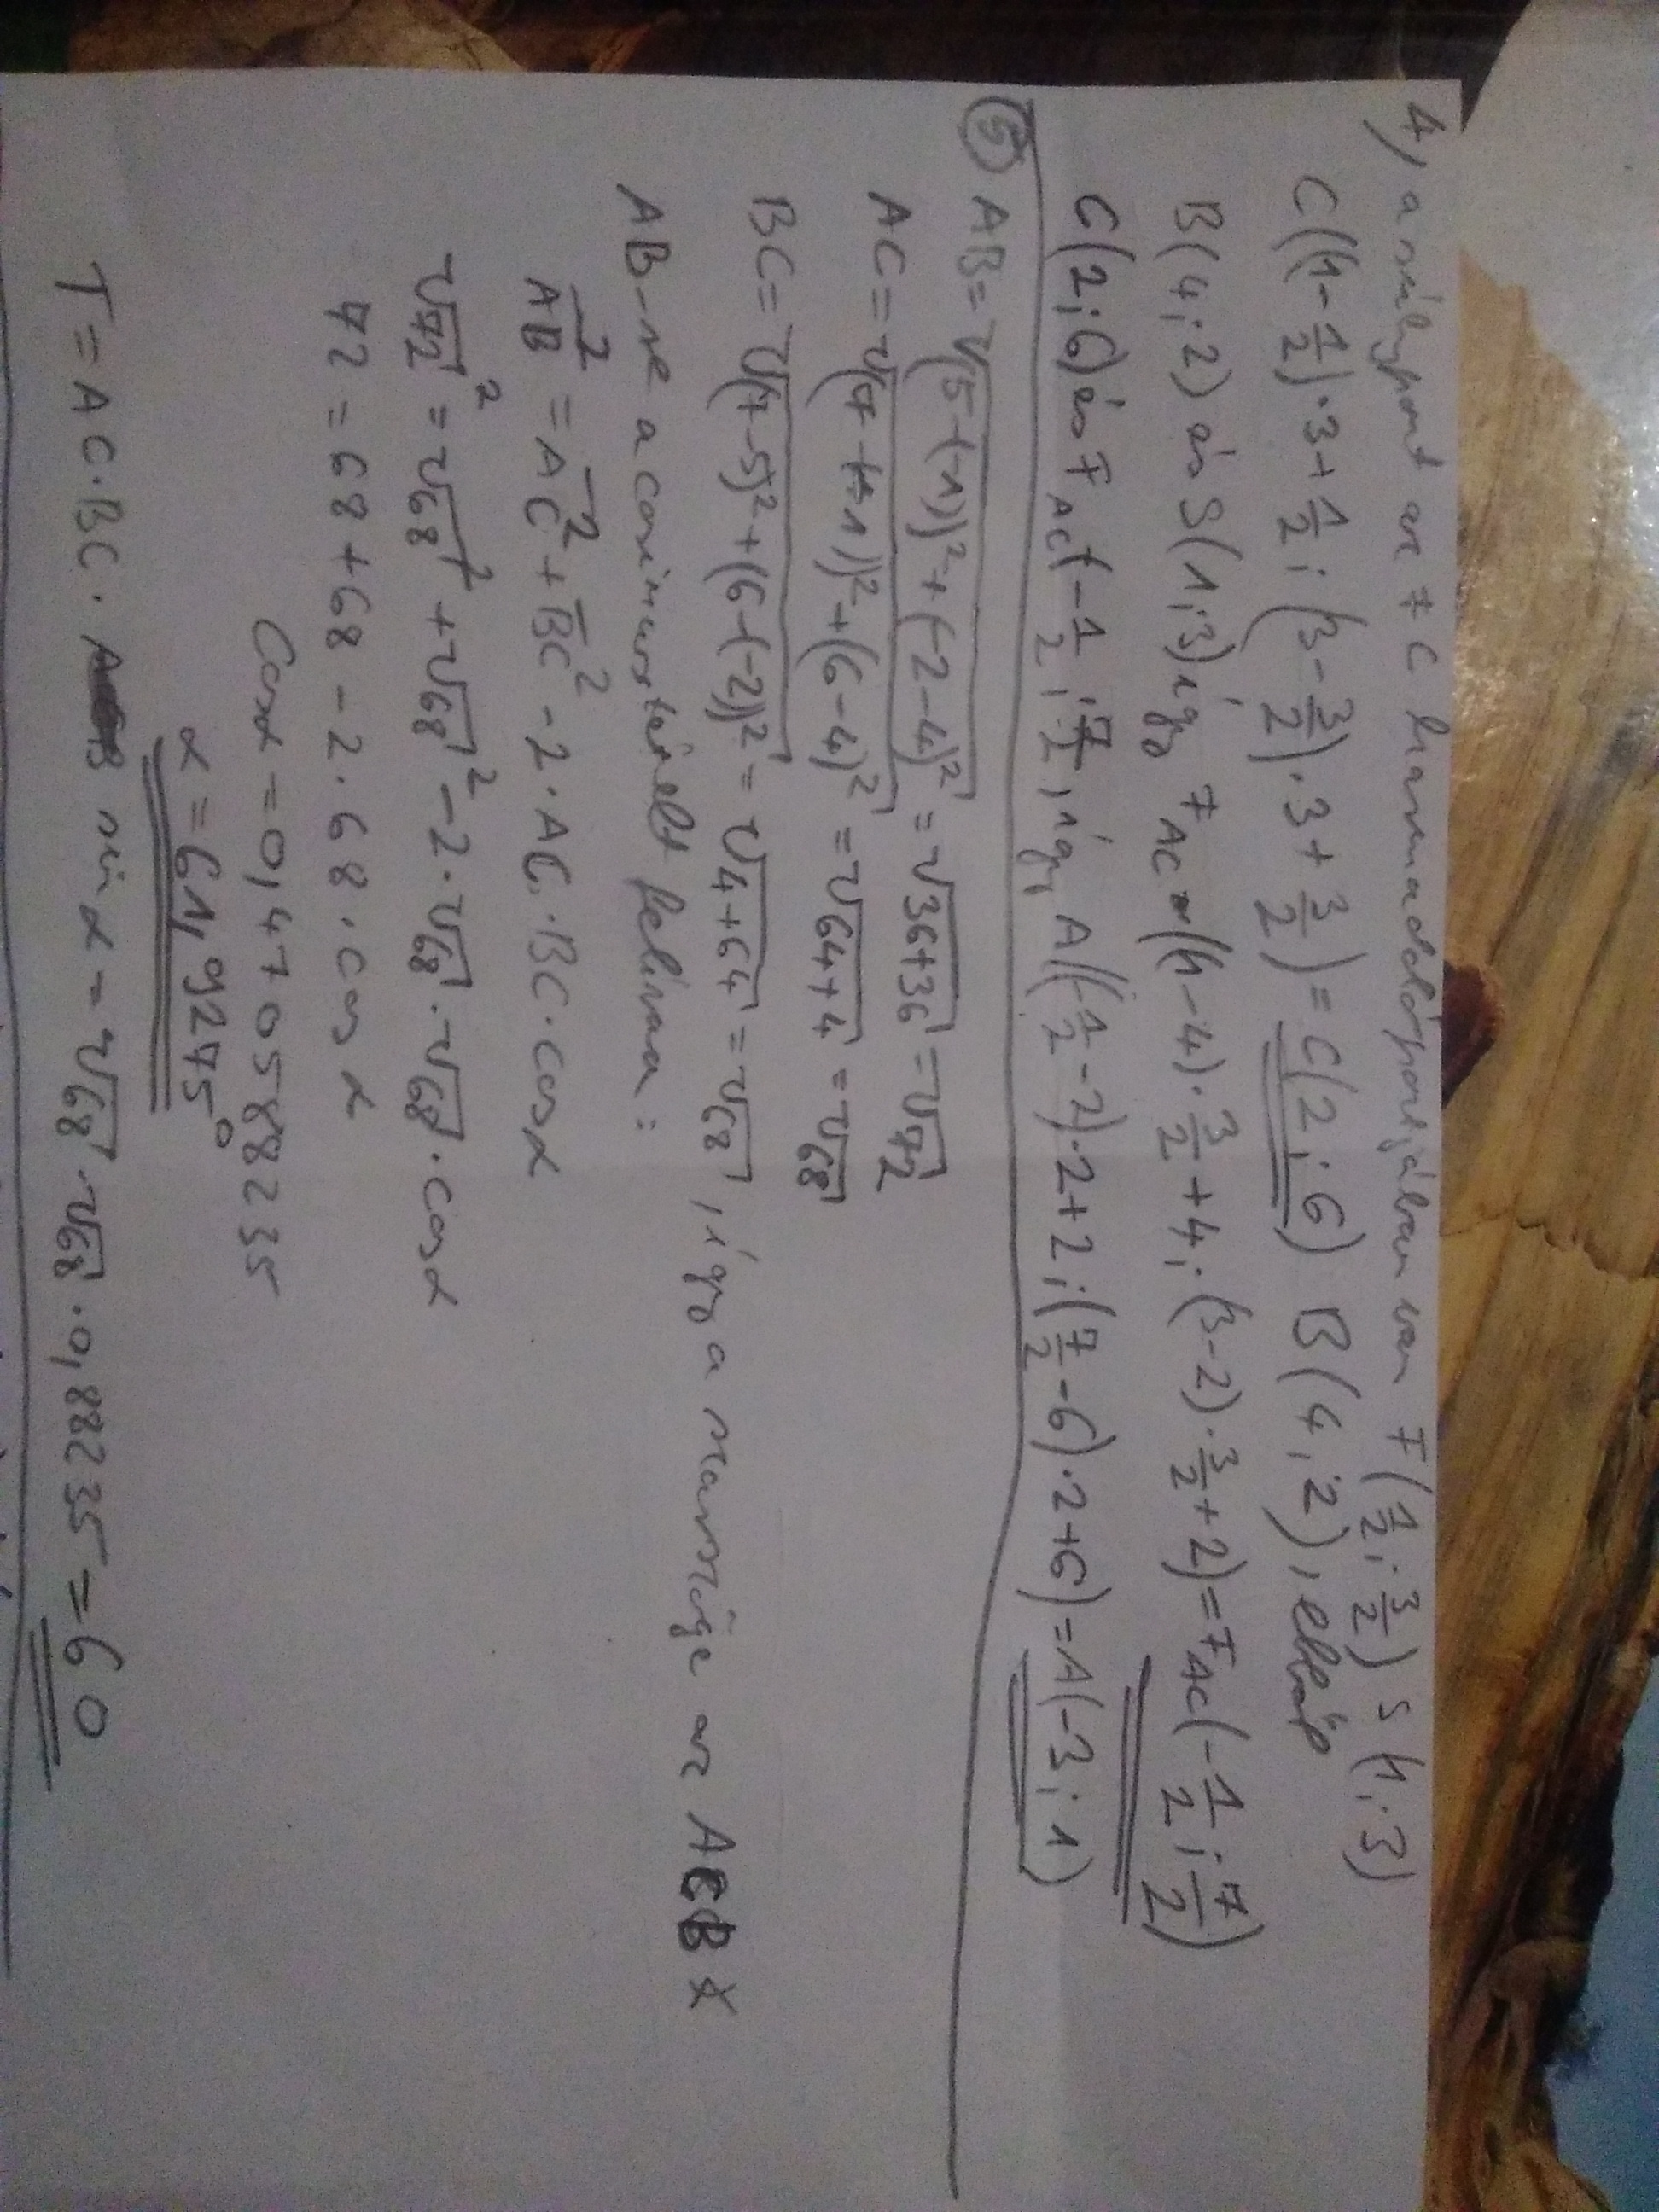 4, a súlypont az FC harmadolópontjában van F(1/2; 3/2) S(1; 3)
C((1-1/2)·3+1/2; (3-3/2)·3+3/2) = C(2; 6) B(4; 2), ebből
B(4; 2) és S(1; 3) így F_AC = ((1-4)·3/2+4; (3-2)·3/2+2) = F_AC(-1/2; 7/2)
C(2; 6) és F_AC(-1/2; 7/2, így A((-1/2-2)·2+2; (7/2-6)·2+6) = A(-3; 1)
5 AB = √(5-(-1))²+(-2-4)² = √36+36 = √72
AC = √(7-(-1))²+(6-4)² = √64+4 = √68
BC = √(7-5)²+(6-(-2))² = √4+64 = √68, így a szárszöge az ACB ∢
AB-re a cosinus tételt felírva:
AB² = AC² + BC² - 2·AC·BC·cos α
√72² = √68² + √68² - 2·√68·√68·cos α
72 = 68 + 68 - 2·68·cos α
Cos α = 0,470588235
α = 61,9275°
T = AC·BC· sin α = √68·√68·0,88235 = 60